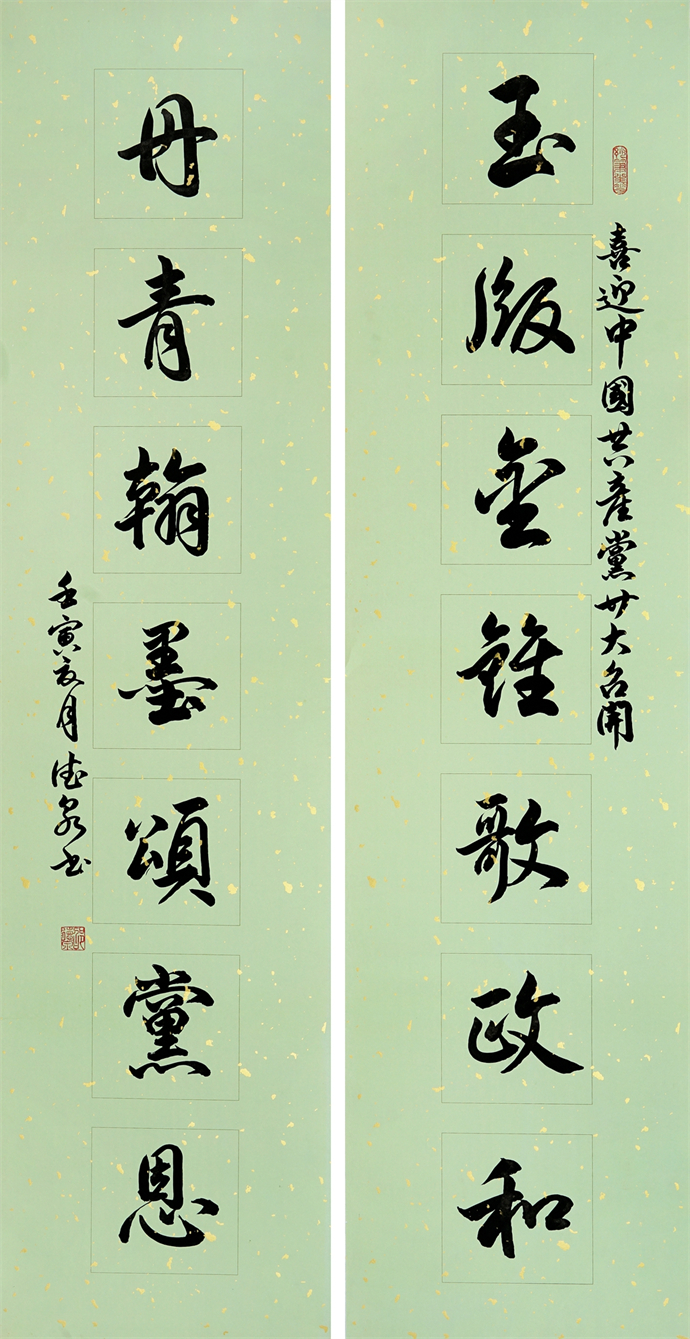 喜迎中國共產黨廿大召開
玉版金錐歌政和
丹青翰墨頌黨恩
壬寅夏月德泉书